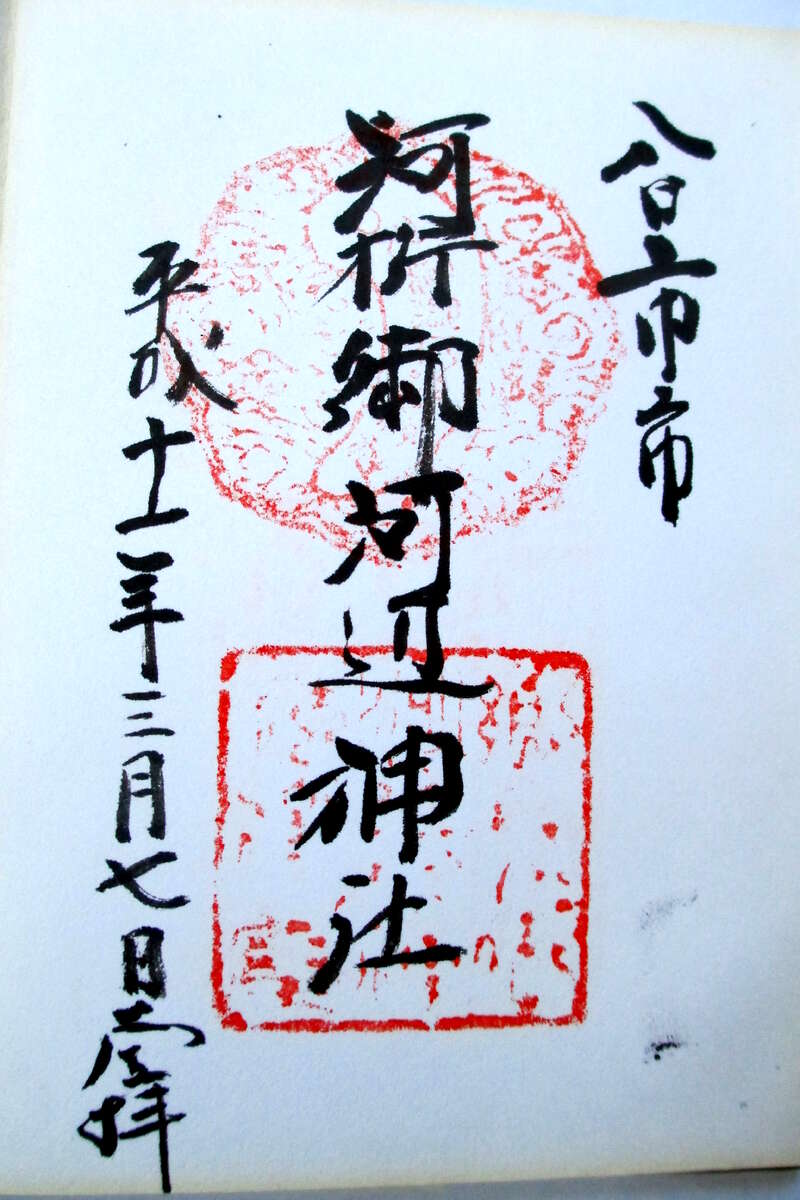 八日市市
河桁御河辺神社
平成十二年三月七日参拝